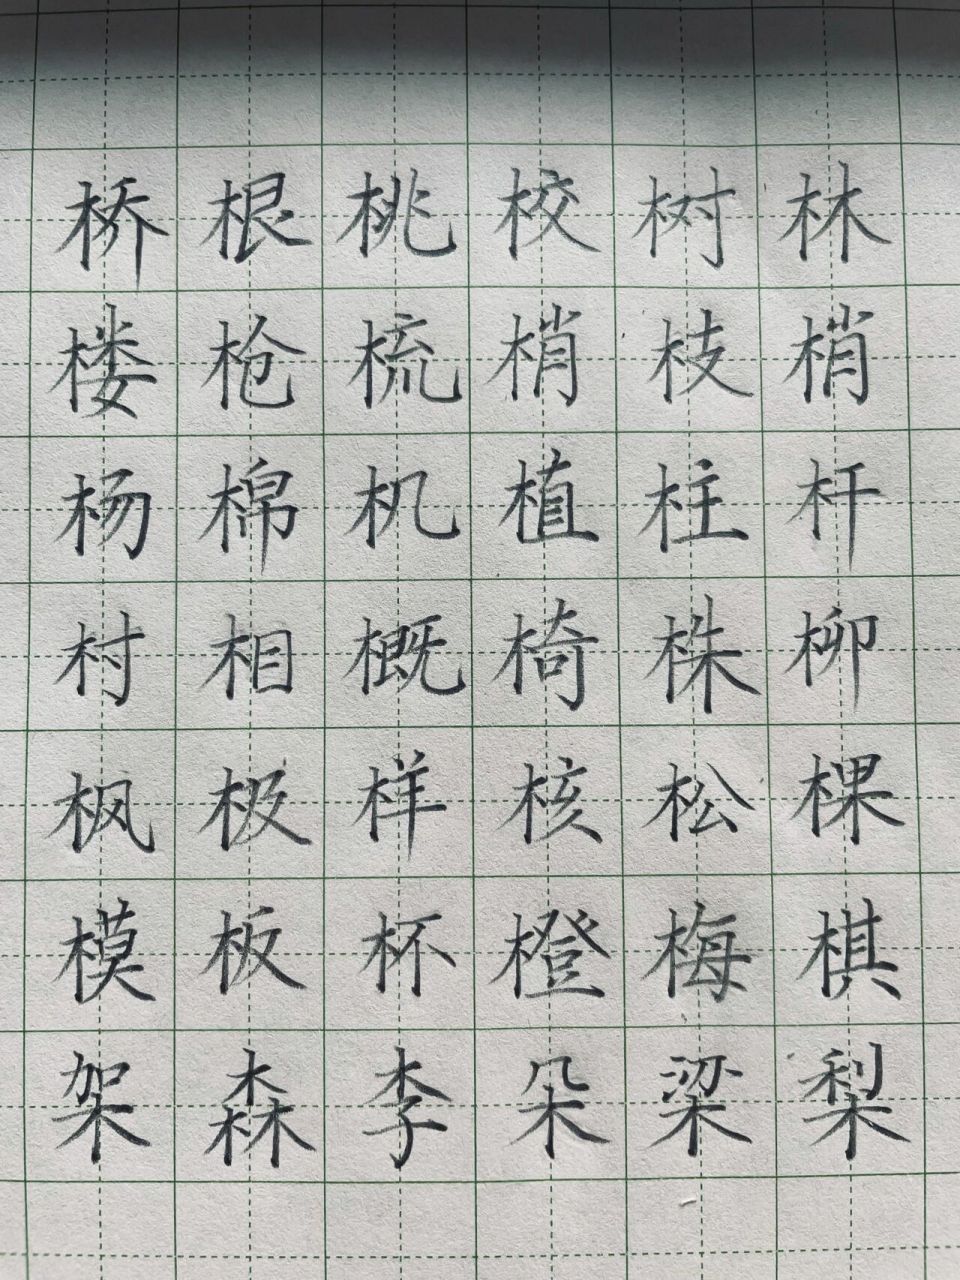 桥根桃校树林
楼枪梳梢枝梢
杨棉机植柱杆
村相概椅株柳
枫极样核松棵
模板杯橙梅棋
架森李朵梁梨